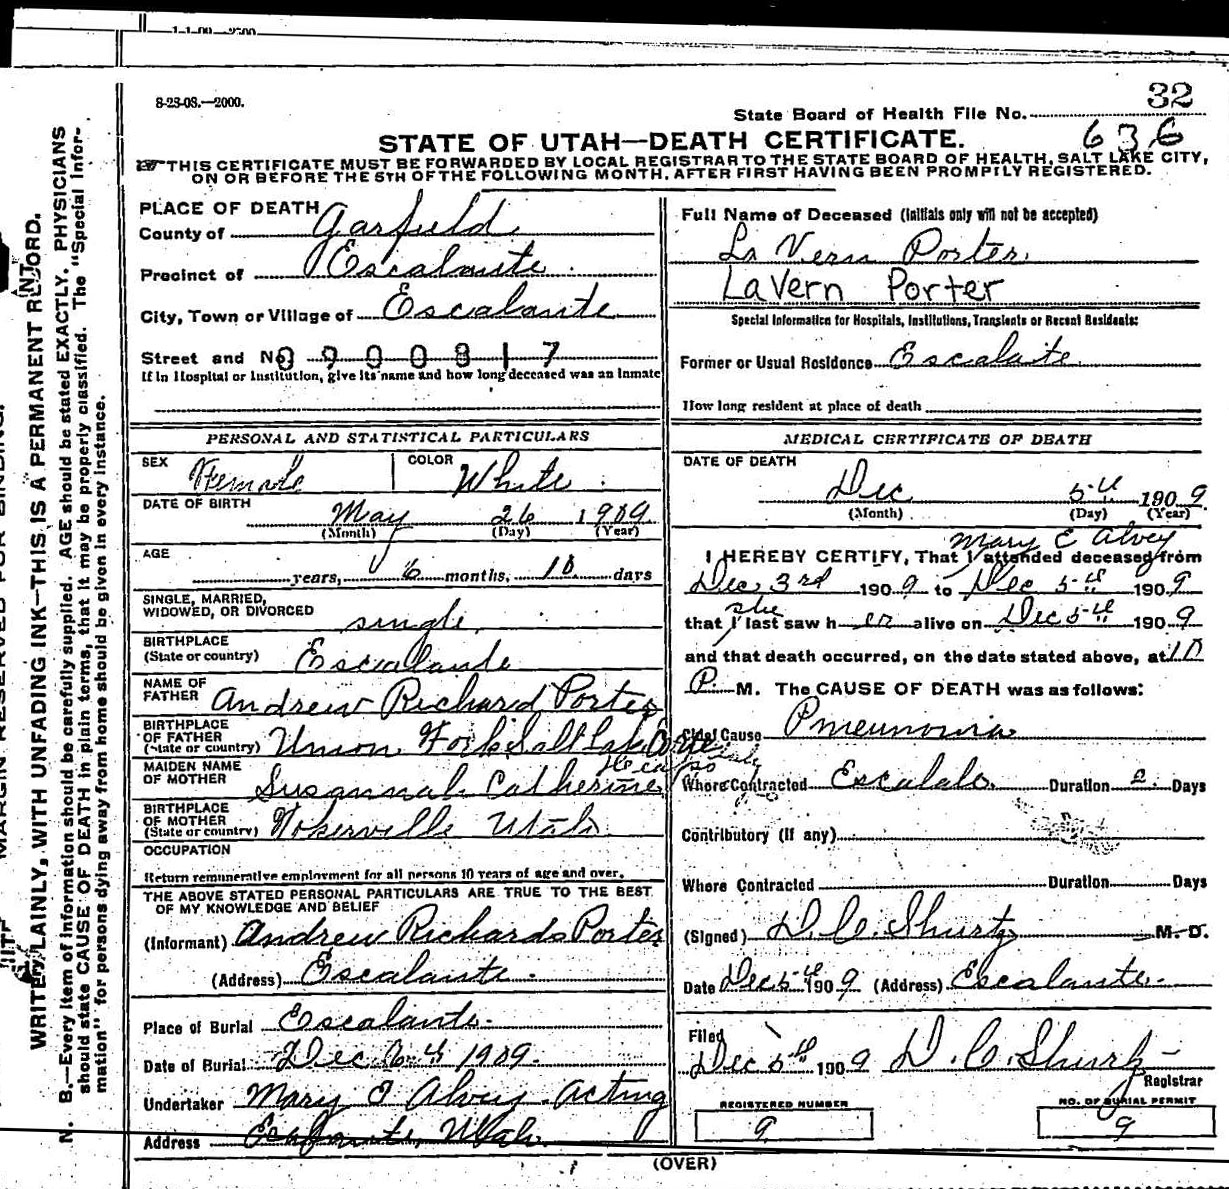 1-1-09—2500
8-23-08.—2000.
32
State Board of Health File No.
636
STATE OF UTAH—DEATH CERTIFICATE.
THIS CERTIFICATE MUST BE FORWARDED BY LOCAL REGISTRAR TO THE STATE BOARD OF HEALTH, SALT LAKE CITY,
ON OR BEFORE THE 5TH OF THE FOLLOWING MONTH, AFTER FIRST HAVING BEEN PROMPTLY REGISTERED.
PLACE OF DEATH
County of Garfield
Precinct of Escalante
City, Town or Village of Escalante
Street and No. 0900817
If in Hospital or Institution, give its name and how long deceased was an inmate
PERSONAL AND STATISTICAL PARTICULARS
SEX Female COLOR White
DATE OF BIRTH May 26 1909
(Month) (Day) (Year)
AGE
years, 6 months, 10 days
SINGLE, MARRIED,
WIDOWED, OR DIVORCED single
BIRTHPLACE
(State or country) Escalante
NAME OF
FATHER Andrew Richard Porter
BIRTHPLACE
OF FATHER
(State or country) Union Fork Salt Lake
MAIDEN NAME
OF MOTHER Susannah Catherine
BIRTHPLACE
OF MOTHER
(State or country) Tokerville Utah
OCCUPATION
Return remunerative employment for all persons 10 years of age and over.
THE ABOVE STATED PERSONAL PARTICULARS ARE TRUE TO THE BEST
OF MY KNOWLEDGE AND BELIEF
(Informant) Andrew Richards Porter
(Address) Escalante
Place of Burial Escalante
Date of Burial Dec 6th 1909
Undertaker Mary E Alvey Acting
Address Escalante, Utah
Full Name of Deceased (Initials only will not be accepted)
La Vern Porter
LaVern Porter
Special Information for Hospitals, Institutions, Transients or Recent Residents:
Former or Usual Residence Escalaite
How long resident at place of death
MEDICAL CERTIFICATE OF DEATH
DATE OF DEATH
Dec 5th 1909
(Month) (Day) (Year)
Mary E Alvey
I HEREBY CERTIFY, That I attended deceased from
Dec 3rd 1909 to Dec 5th 1909
she
that I last saw her alive on Dec 5th 1909
and that death occurred, on the date stated above, at 10
P. M. The CAUSE OF DEATH was as follows:
Chief Cause Pneumonia
Where Contracted Duration 2 Days
Contributory (If any)
Where Contracted Duration Days
(Signed) D. C. Shurtz M. D.
Date Dec 5th 1909 (Address) Escalante
Filed
Dec 5th 1909 D. C. Shurtz
Registrar
REGISTERED NUMBER
9
NO. OF BURIAL PERMIT
9
(OVER)
MARGIN RESERVED FOR BINDING.
WRITE PLAINLY, WITH UNFADING INK—THIS IS A PERMANENT RECORD.
N. B.—Every item of information should be carefully supplied. AGE should be stated EXACTLY. PHYSICIANS
should state CAUSE OF DEATH in plain terms, that it may be properly classified. The "Special Infor-
mation" for persons dying away from home should be given in every instance.